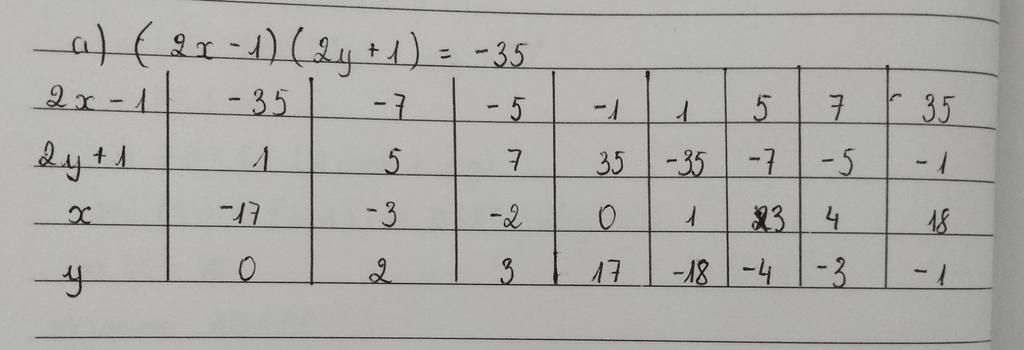 a) (2x-1)(2y+1) = -35
2x-1 -35 -7 -5 -1 1 5 7 35
2y+1 1 5 7 35 -35 -7 -5 -1
x -17 -3 -2 0 1 3 4 18
y 0 2 3 17 -18 -4 -3 -1